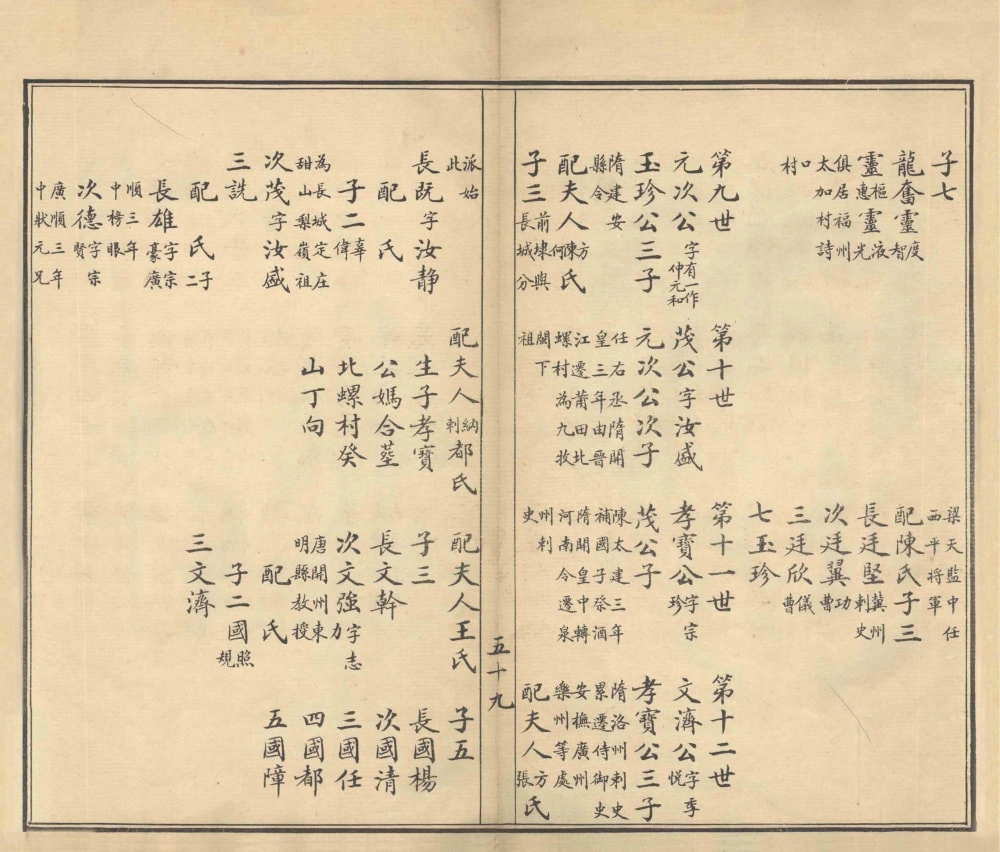 子七
龍奮靈度智
靈樞惠靈液光
俱居福州
太加村詩
口
村
第九世
元次公字有一作仲元和
玉珍公三子
隋建安
縣令
配夫人方陳何氏
子三前埭與
長城分
第十世
茂公字汝盛
元次公次子
任右丞隋開
皇三年由晉
江遷莆田北
螺村為九牧
閣下
祖
梁天監中任
西平將軍
配陳氏子三
長廷堅冀州刺史
次廷翼功曹
三廷欣儀曹
七玉珍
第十一世
孝寶公字宗珍
茂公子
陳太建三年
補國子祭酒
隋開皇中轉
河南令遷泉
州刺
史
第十二世
文濟公字季悅
孝寶公三子
隋洛州刺史
累遷侍御史
安撫廣州
樂州等處
配夫人方張氏
五十九
派始
此
長既字汝靜
配氏
為長城定庄
甜山梨嶺祖
子二辜偉
次茂字汝盛
三詵
配氏子二
長雄字宗豪廣
順三年
中榜眼
次德字宗賢
廣順三年
中狀元兄
配夫人納剌都氏
生子孝寶
公媽合塟
北螺村癸
山丁向
配夫人王氏
子三
長文幹
次文強字志力
唐開州東
明縣教授
配氏
子二國照規
三文濟
子五
長國楊
次國清
三國任
四國都
五國障